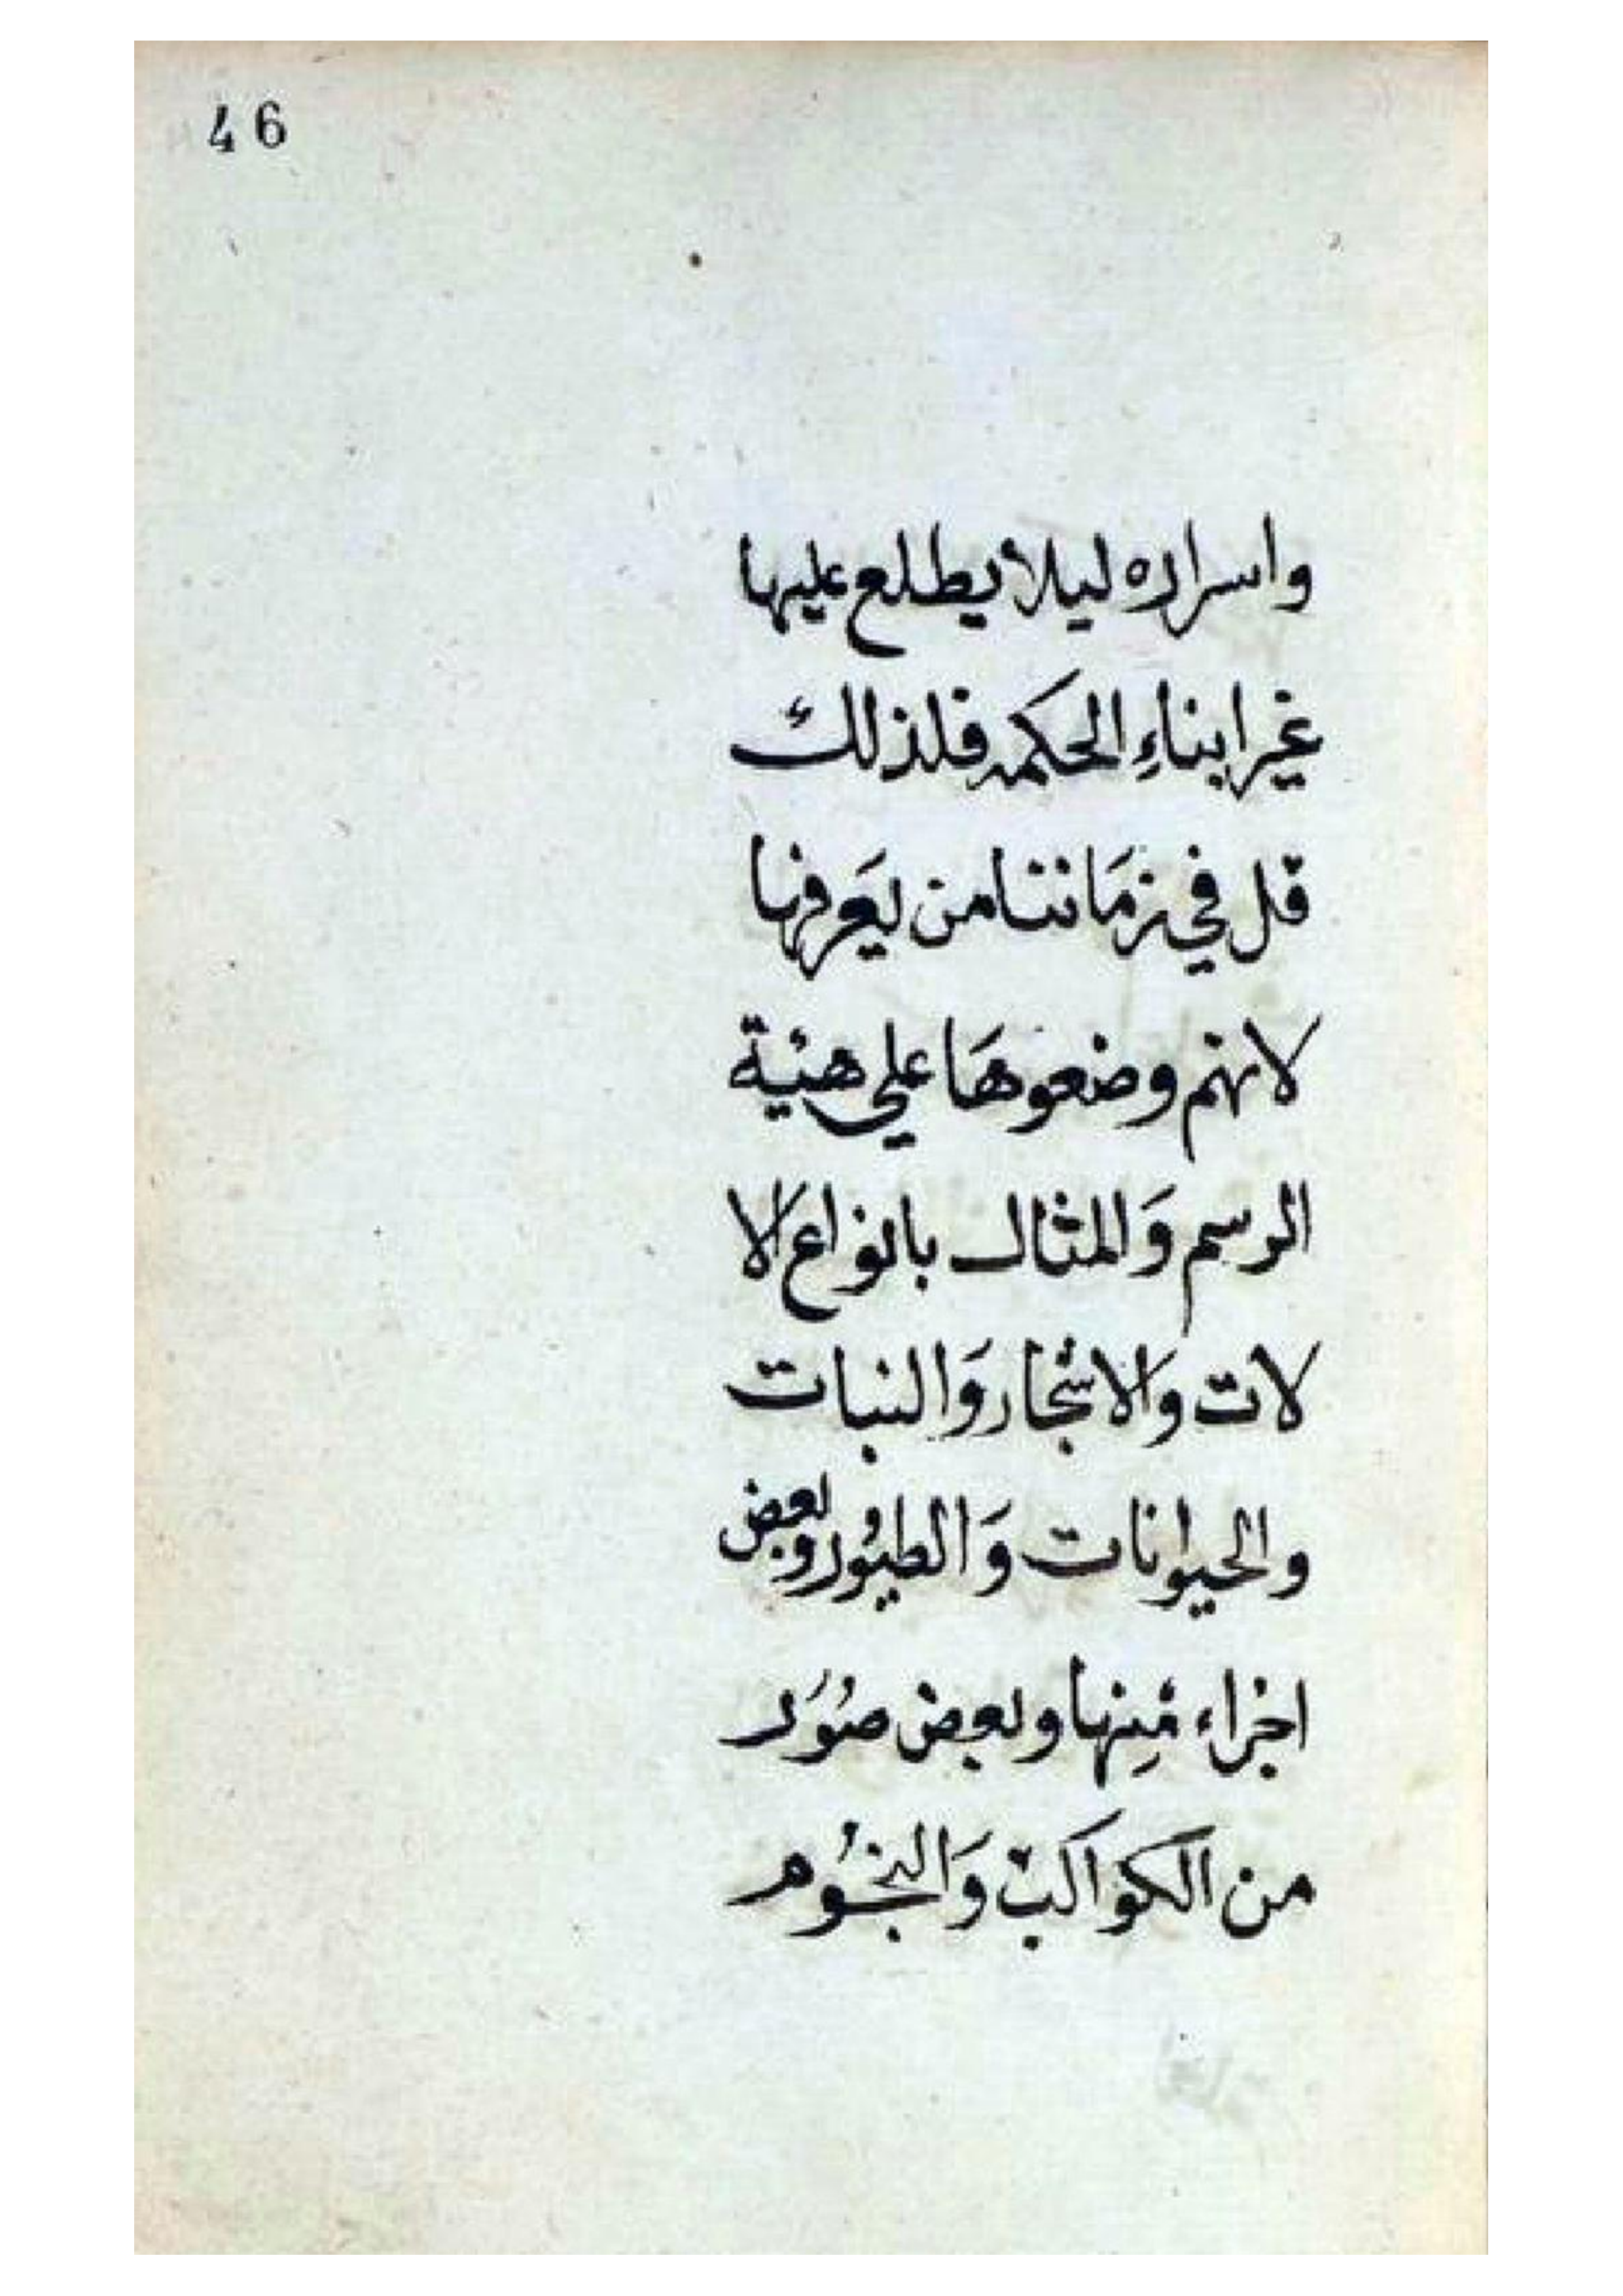 46
واسراره ليلا يطلع عليها
غير ابناءِ الحكمه فلذلك
قل في زمَاننا من يعَرفها
لانهم وضعوهَا علي هيئة
الرسم وَالمثال بانواع الا
لات وَالاشجار وَالنبات
والحيوانات وَالطيُور وبعض
اجزاء مِنها وبعض صُوَر
من الكوَاكب وَالنجُوم